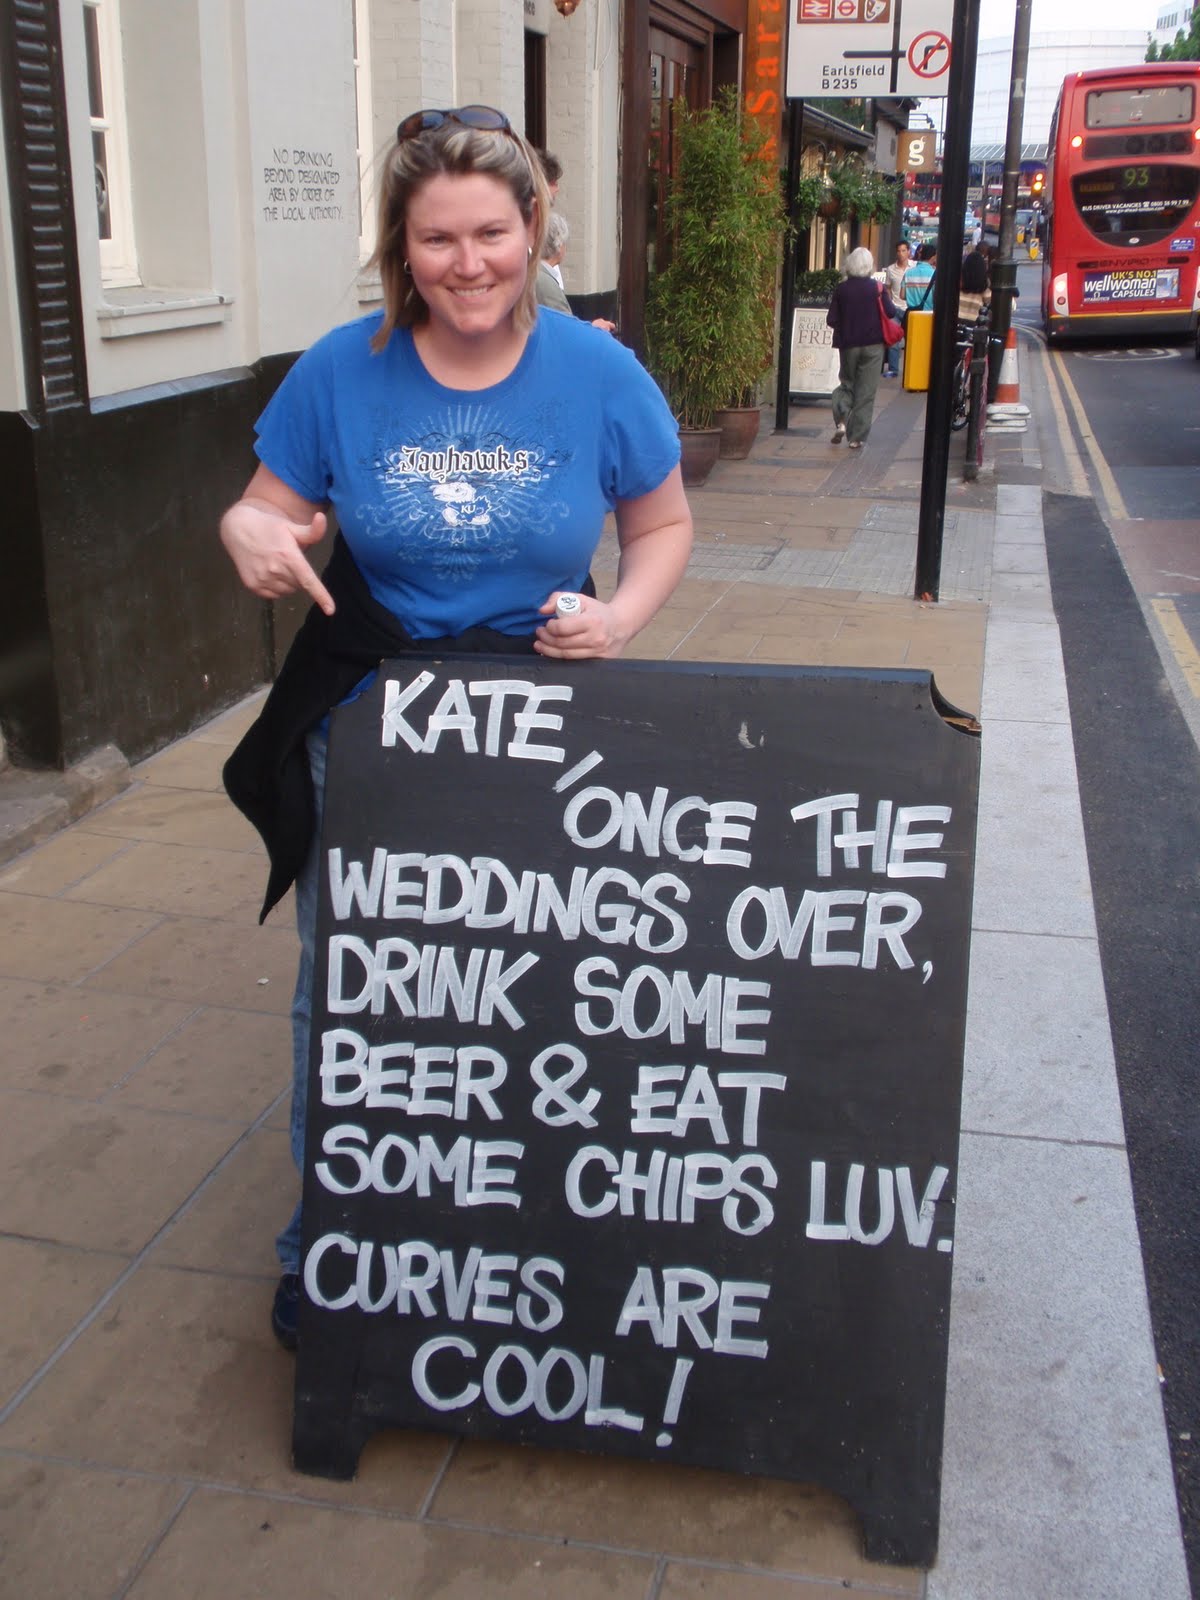 Earlsfield
B 235
g
93
NO DRINKING
BEYOND DESIGNATED
AREA BY ORDER OF
THE LOCAL AUTHORITY.
BUS DRIVER VACANCIES
ENVIRO
UK'S NO.1
wellwoman
CAPSULES
& GET
FRE
Jayhawks
KU
KATE,
ONCE THE
WEDDINGS OVER,
DRINK SOME
BEER & EAT
SOME CHIPS LUV.
CURVES ARE
COOL!